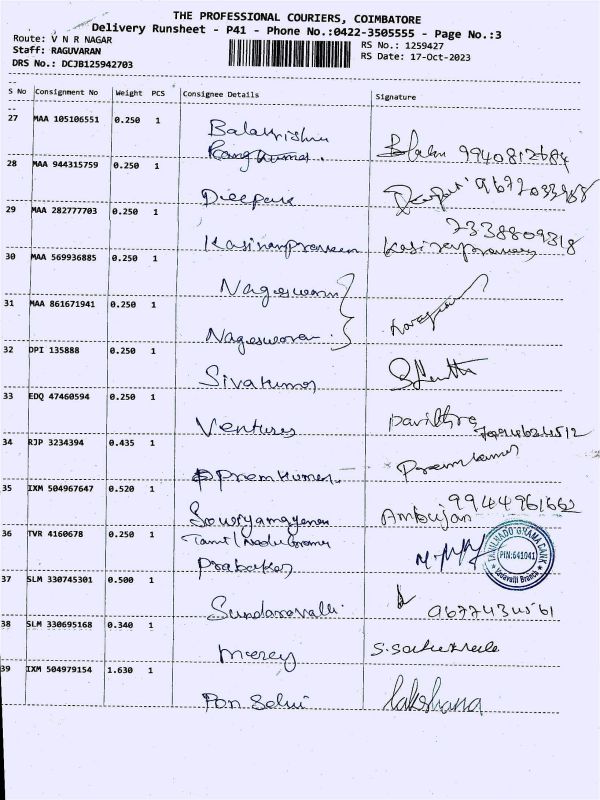 THE PROFESSIONAL COURIERS, COIMBATORE
Delivery Runsheet - P41 - Phone No.:0422-3505555 - Page No.:3
Route: V N R NAGAR
Staff: RAGUVARAN
DRS No.: DCJB125942703
RS No.: 1259427
RS Date: 17-Oct-2023
S No Consignment No Weight PCS Consignee Details Signature
27 MAA 105106551 0.250 1
Balakrishna
Ramkumar.
28 MAA 944315759 0.250 1
Deepak
29 MAA 282777703 0.250 1
7338809318
Kasiranpraveen
30 MAA 569936885 0.250 1
Nageswaran
31 MAA 861671941 0.250 1
Nageswaran
32 DPI 135888 0.250 1
Sivakumar
33 EDQ 47460594 0.250 1
Ventures Pavithra
34 RJP 3234394 0.435 1
Premkumar. Premkumar
35 IXM 504967647 0.520 1
9944961662
Ambujan
36 TVR 4160678 0.250 1
Tamil Nadu Grama
Prabakar
TAMILNADU GRAMA BANK
PIN:641041
Vadavalli Branch
37 SLM 330745301 0.500 1
Sundaravalli
38 SLM 330695168 0.340 1
Mercy
39 IXM 504979154 1.630 1
Pon Selvi lakshana